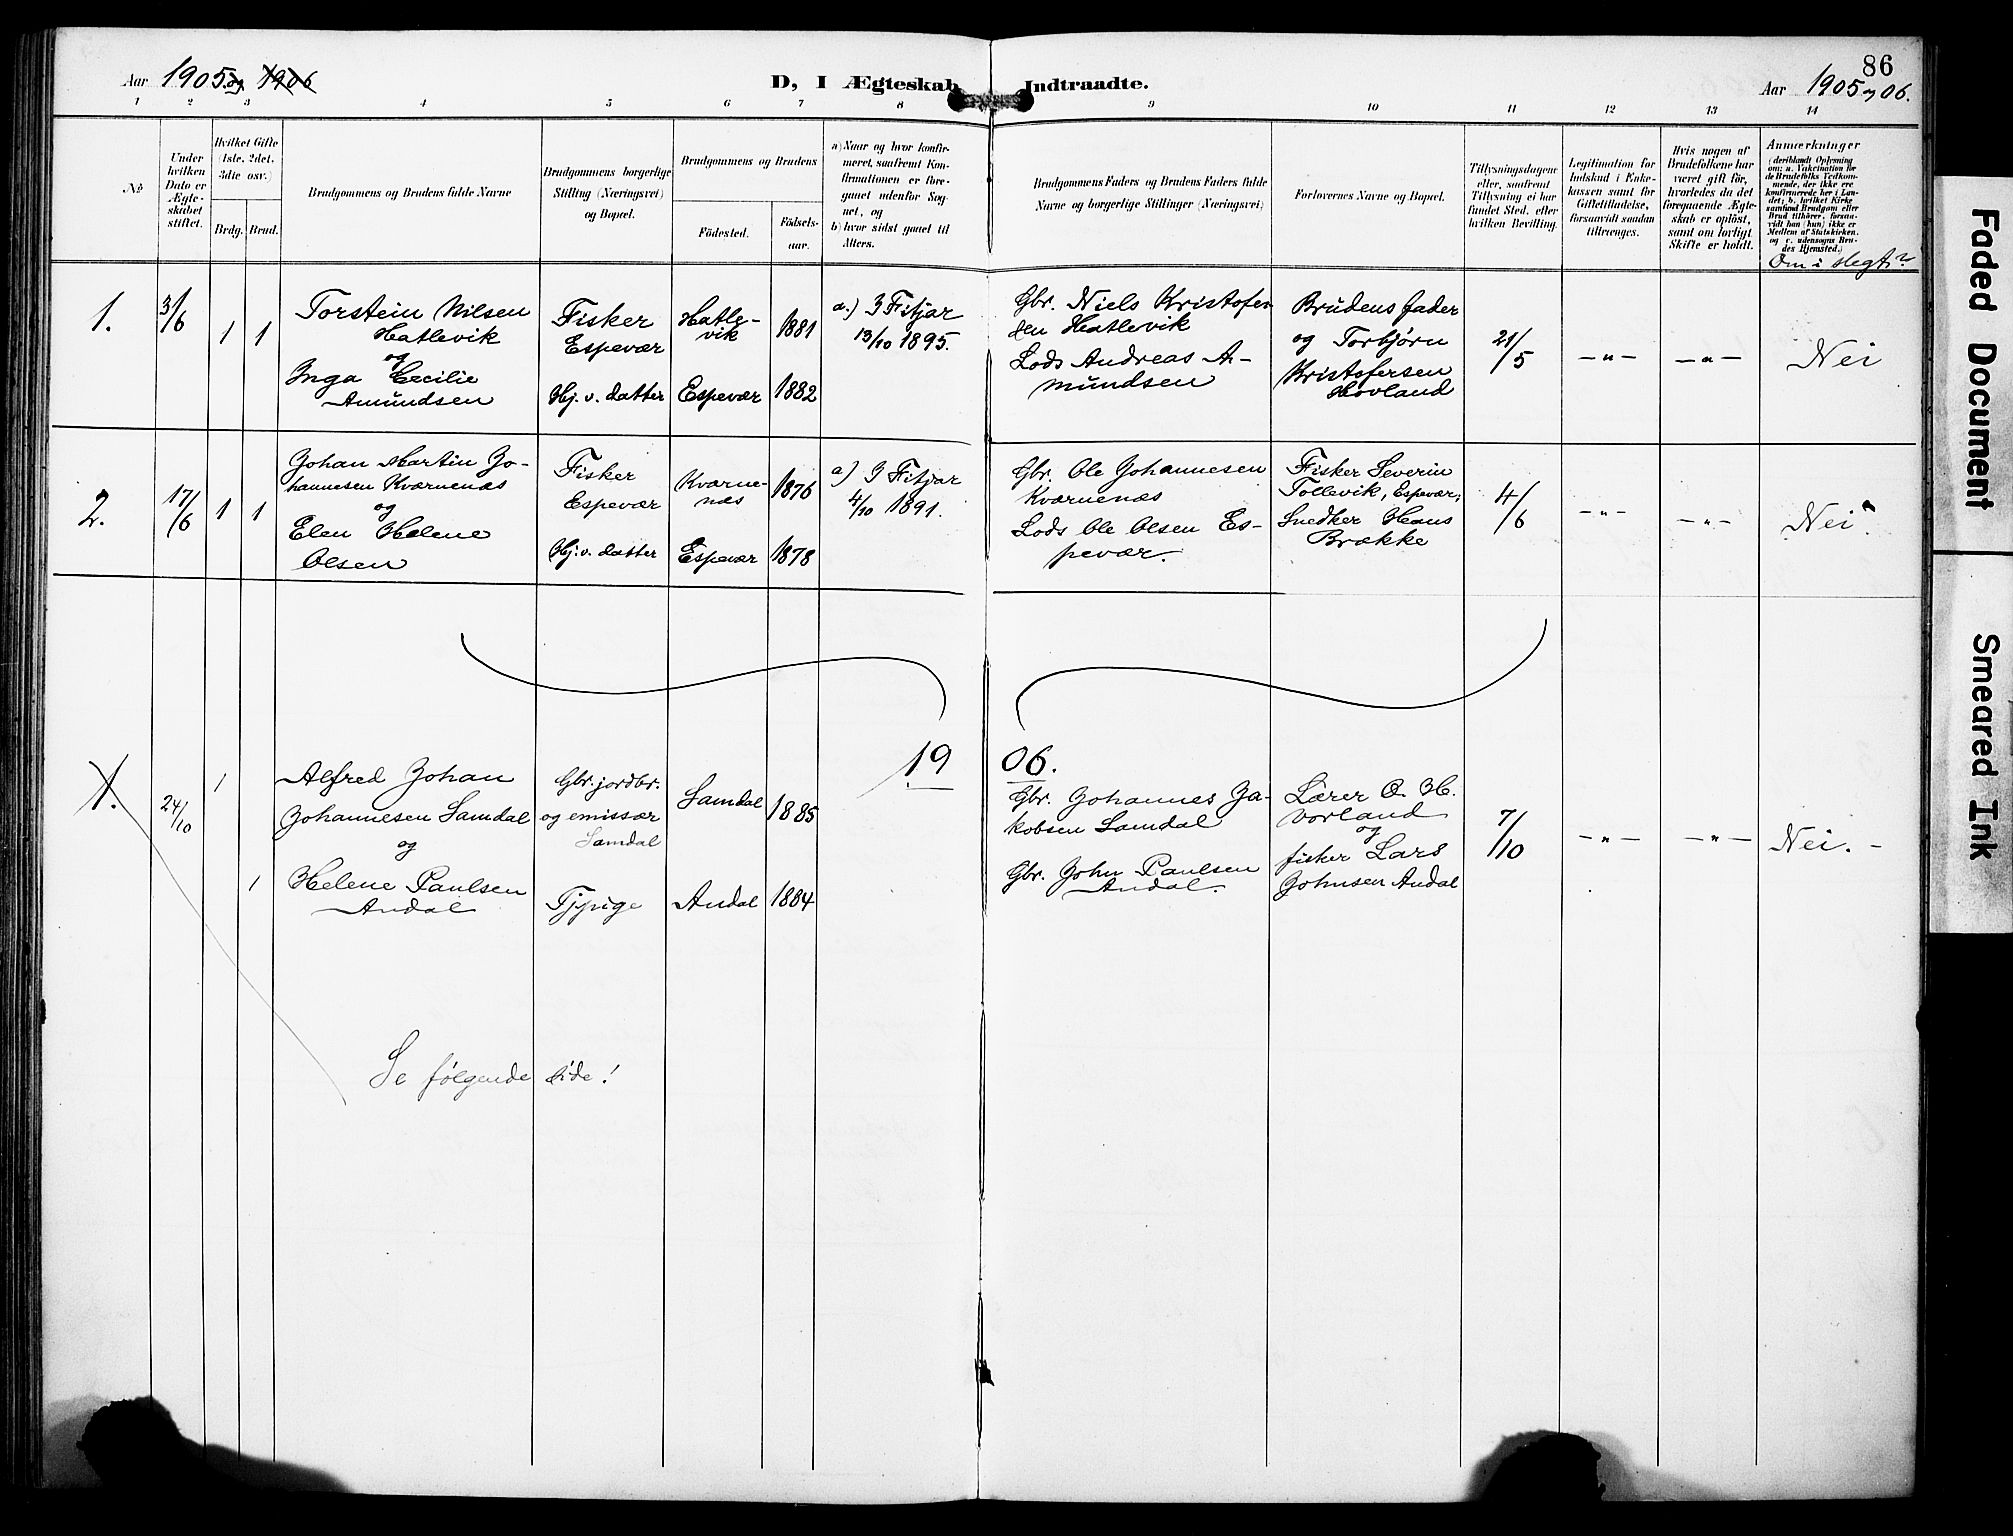 86
Aar 1905 og 1906
D, I Ægteskab Indtraadte.
Aar 1905 og 06.
1 2 3 4 5 6 7 8 9 10 11 12 13 14
No
Under hvilken Dato er Ægteskabet stiftet.
Hvilket Gifte (1ste, 2det, 3die osv.)
Brdg. Brud.
Brudgommens og Brudens fulde Navne
Brudgommens borgerlige Stilling (Næringsvei) og Bopæl.
Brudgommens og Brudens
Födested.
Födsels-aar.
a) Naar og hvor konfirmeret, saafremt Konfirmationen er foregaaet udenfor Sognet, og
b) hvor sidst gaaet til Alters.
Brudgommens Faders og Brudens Faders fulde Navne og borgerlige Stillinger (Næringsvei)
Forlovernes Navne og Bopæl.
Tillysningsdagene eller, saafremt Tillysning ei har fundet Sted, efter hvilken Bevilling.
Legitimation for Indskud i Enkekassen samt for Giftetilladelse, forsaavidt saadan tiltrænges.
Hvis nogen af Brudefolkene har været gift før, hvorledes da det foregaaende Ægteskab er oplöst, samt om lovligt Skifte er holdt.
Anmærkninger
(deriblandt Oplysning om: a. Vakcination for de Brudefolks Vedkommende, der ikke ere konfirmerede her i Landet; b. hvilket Kirkesamfund Brudgom eller Brud tilhörer, forsaavidt han (hun) ikke er Medlem af Statskirken, og c. udensogns Brudes Hjemsted.)
Om i slegt?
1. 3/6 1 1
Torstein Nilsen
Hatlevik
og
Inga Cecilie
Amundsen
Fisker
Espevær
Hj. v. datter
Hatle-
vik
Espevær
1881
1882
a.) I Fitjar
13/10 1895.
Gbr. Niels Kristofer-
sen Hatlevik
Lods Andreas A-
mundsen
Brudens fader
og Torbjørn
Kristofersen
Hovland
21/5
—"—
—"—
Nei
2. 17/6 1 1
Johan Martin Jo-
hannesen Kværnenæs
og
Elen Helene
Olsen
Fisker
Espevær
Hj. v. datter
Kværne-
næs
Espevær
1876
1878
a) I Fitjar
4/10 1891.
Gbr. Ole Johannesen
Kværnenæs
Lods Ole Olsen Es-
pevær.
Fisker Severin
Tollevik, Espevær,
Snedker Hans
Brække
4/6
—"—
—"—
Nei.
1906.
1. 24/10 1 1
Alfred Johan
Johannesen Samdal
og
Helene Paulsen
Andal
Gbr. jordbr.
og emissær
Samdal
Tjpige
Samdal
Andal
1885
1884
Gbr. Johannes Ja-
kobsen Samdal
Gbr. John Paulsen
Andal.
Lærer O. H.
Vorland
og
fisker Lars
Johnsen Andal
7/10
—"—
—"—
Nei. –
Se følgende side!
Faded Document
Smeared Ink